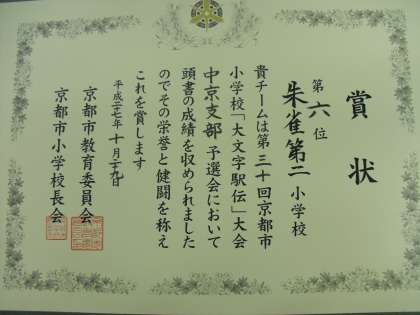 賞状
第六位
朱雀第二小学校
貴チームは第三十回京都市
小学校「大文字駅伝」大会
中京支部予選会において
頭書の成績を収められました
のでその栄誉と健闘を称え
これを賞します
平成二十七年十月二十九日
京都市教育委員会
京都市小学校長会